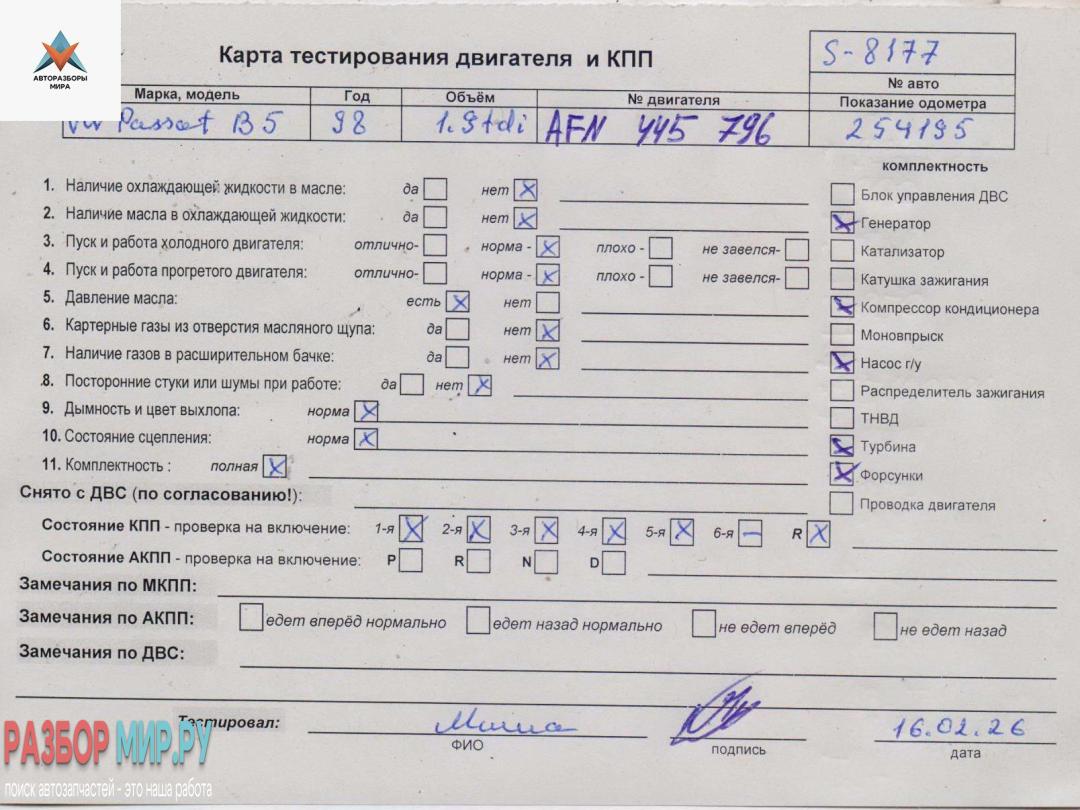 АВТОРАЗБОРЫ
МИРА
Карта тестирования двигателя и КПП
S-8177
№ авто
Марка, модель Год Объём № двигателя Показание одометра
VW Passat B5 98 1.9tdi AFN 445 796 254195
комплектность
1. Наличие охлаждающей жидкости в масле: да нет X
Блок управления ДВС
2. Наличие масла в охлаждающей жидкости: да нет X
X Генератор
3. Пуск и работа холодного двигателя: отлично- норма - X плохо - не завелся-
Катализатор
4. Пуск и работа прогретого двигателя: отлично- норма - X плохо - не завелся-
Катушка зажигания
5. Давление масла: есть X нет
X Компрессор кондиционера
6. Картерные газы из отверстия масляного щупа: да нет X
Моновпрыск
7. Наличие газов в расширительном бачке: да нет X
X Насос г/у
8. Посторонние стуки или шумы при работе: да нет X
Распределитель зажигания
9. Дымность и цвет выхлопа: норма X
ТНВД
10. Состояние сцепления: норма X
X Турбина
11. Комплектность : полная X
X Форсунки
Снято с ДВС (по согласованию!):
Проводка двигателя
Состояние КПП - проверка на включение: 1-я X 2-я X 3-я X 4-я X 5-я X 6-я – R X
Состояние АКПП - проверка на включение: P R N D
Замечания по МКПП:
Замечания по АКПП: едет вперёд нормально едет назад нормально не едет вперёд не едет назад
Замечания по ДВС:
Тестировал: Миша 16.02.26
ФИО подпись дата
РАЗБОР МИР.РУ
поиск автозапчастей - это наша работа